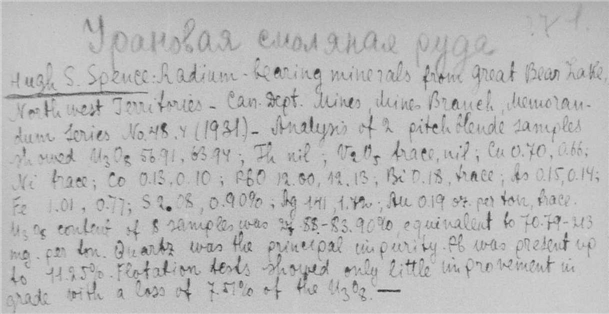 371.
Урановая смоляная руда
Hugh S. Spence: Radium-bearing minerals from great Bear Lake,
North west Territories - Can. Dept. Mines, Mines Branch, Memoran-
dum Series No. 48. (1931) - Analysis of 2 pitchblende samples
showed U3O8 56.91, 63.94; Th nil; V2O5 trace, nil; Cu 0.70, 0.66;
Ni trace; Co 0.13, 0.10; PbO 12.00, 12.13; Bi 0.18, trace; As 0.15, 0.14;
Fe 1.01, 0.77; S 2.08, 0.90%; Ag 1.72; Au 0.19 oz. per ton, trace.
U3O8 content of 8 samples was 83.90%, equivalent to 70.79-213
mg. per ton. Quartz was the principal impurity. Pb was present up
to 11.25%. Flotation tests showed only little improvement in
grade with a loss of 7.51% of the U3O8. —